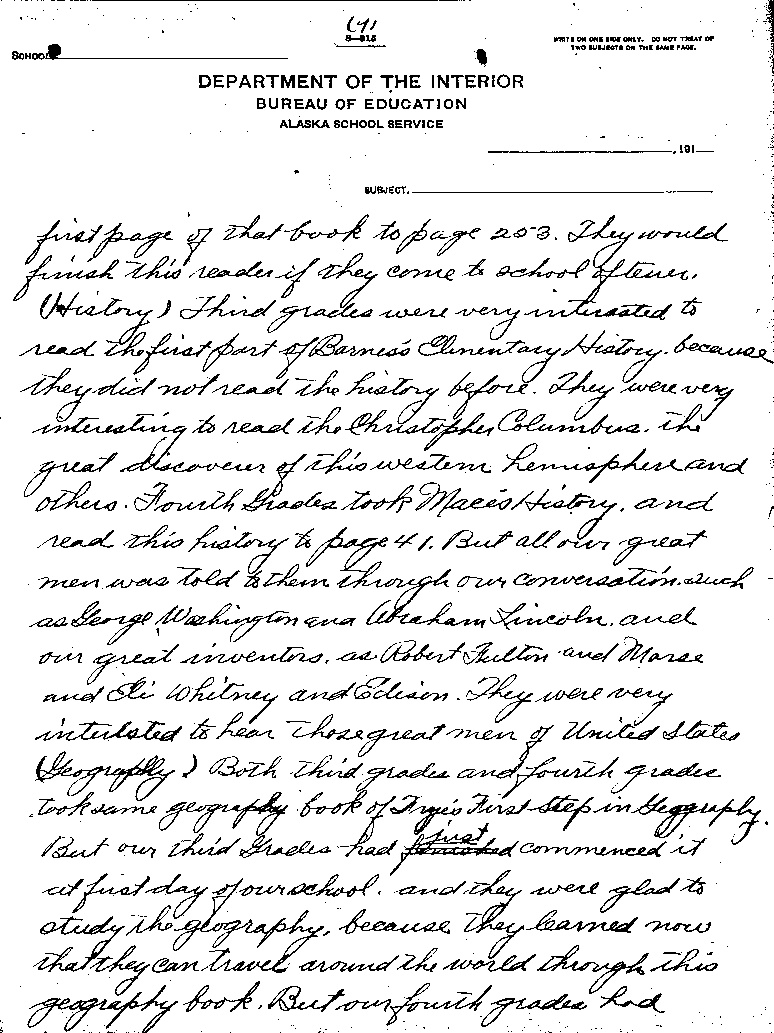 (4)
8-915
WRITE ON ONE SIDE ONLY. DO NOT TREAT OF
TWO SUBJECTS ON THE SAME PAGE.
SCHOOL
DEPARTMENT OF THE INTERIOR
BUREAU OF EDUCATION
ALASKA SCHOOL SERVICE
, 191
SUBJECT.
first page of that book to page 203. They would
finish this reader if they come to school oftener.
(History) Third grades were very interested to
read the first part of Barnes's Elmentary History. because
they did not read the history before. They were very
interesting to read the Christopher Columbus. the
great discoverer of this western hemisphere and
others. Fourth Grades took Mace's History, and
read this history to page 41. But all our great
men was told to them through our conversation. such
as George Washington and Abraham Lincoln. and
our great inventors, as Robert Fulton and Morse
and Eli Whitney and Edison. They were very
interested to hear those great men of United States
(Geography) Both third grades and fourth grades
took same geography book of Frye's First Step in Geography.
But our third Grades had finished just commenced it
at first day of our school. and they were glad to
study the geography, because they learned now
that they can travel around the world through this
geography book. But our fourth grades had